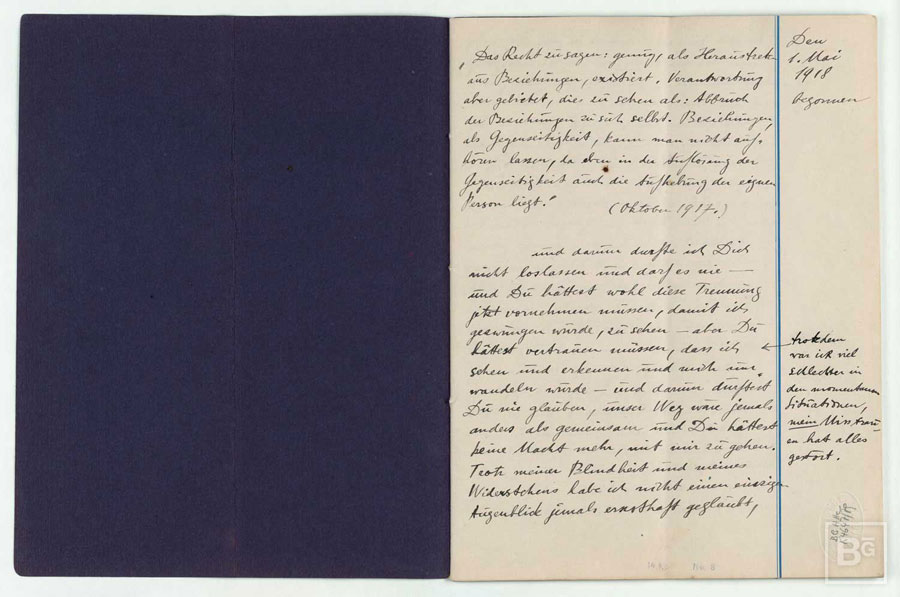 „Das Recht zu sagen: genug, als Heraustreten
aus Beziehungen, existiert. Verantwortung
aber gebietet, dies zu sehen als: Abbruch
der Beziehungen zu sich selbst. Beziehungen,
als Gegenseitigkeit, kann man nicht auf-
hören lassen, da eben in der Auflösung der
Gegenseitigkeit auch die Aufhebung der eignen
Person liegt.“
(Oktober 1917.)
und darum durfte ich Dich
nicht loslassen und darf es nie —
und Du hättest wohl diese Trennung
jetzt vornehmen müssen, damit ich
gezwungen würde, zu sehen — aber Du
hättest vertrauen müssen, dass ich
sehen und erkennen und mich um-
wandeln würde — und darum durftest
Du nie glauben, unser Weg wäre jemals
anders als gemeinsam und Du hättest
keine Macht mehr, mit mir zu gehen.
Trotz meiner Blindheit und meines
Widerstehens habe ich nicht einen einzigen
Augenblick jemals ernsthaft geglaubt,
Den
1. Mai
1918
begonnen
trotzdem
war ich viel
schlechter in
den momentanen
Situationen,
mein Misstrau-
en hat alles
gestört.
BG